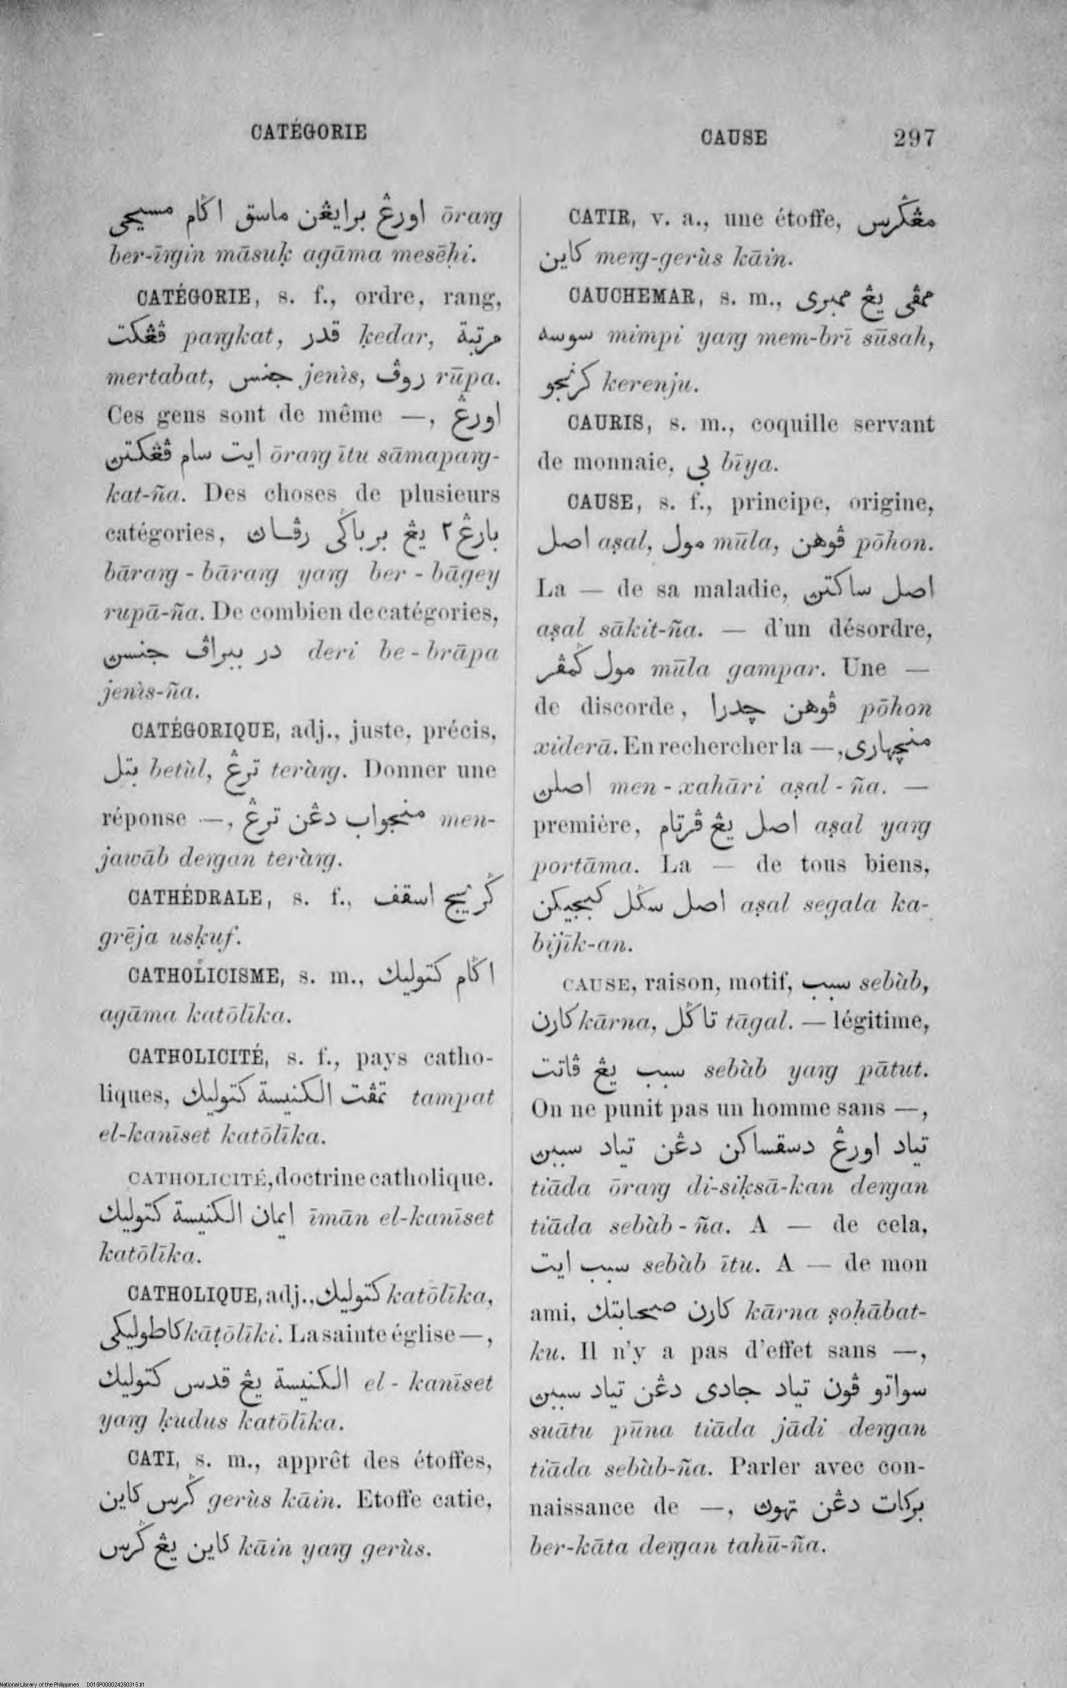 CATÉGORIE
CAUSE 297
اورڠ برايڠن ماسق اݢام مسيحي ōrang
ber-īngin māsuḳ agāma mesēḥi.
CATÉGORIE, s. f., ordre, rang,
ڤڠكت pangkat, قدر ḳedar, مرتبة
mertabat, جنس jenìs, روڤ rūpa.
Ces gens sont de même —, اورڠ
ايت سام ڤڠكتن ōrang ītu sāmapang-
kat-ña. Des choses de plusieurs
catégories, بارڠ٢ يڠ برباݢي رڤاث
bārang - bārang yang ber - bāgey
rupā-ña. De combien de catégories,
در ببراڤ جنسن deri be - brāpa
jenìs-ña.
CATÉGORIQUE, adj., juste, précis,
بتل betùl, ترڠ teràng. Donner une
réponse —, منجواب دڠن ترڠ men-
jawāb dengan teràng.
CATHÉDRALE, s. f., ݢريج اسقف
grēja usḳuf.
CATHOLICISME, s. m., اݢام كتوليك
agāma katōlīka.
CATHOLICITÉ, s. f., pays catho-
liques, تمڤت الكنيسة كتوليك tampat
el-kanīset katōlīka.
CATHOLICITÉ, doctrine catholique.
ايمان الكنيسة كتوليك īmān el-kanīset
katōlīka.
CATHOLIQUE, adj., كتوليك katōlīka,
كاطوليكي kāṭōlīki. La sainte église —,
الكنيسة يڠ قدس كتوليك el - kanīset
yang ḳudus katōlīka.
CATI, s. m., apprêt des étoffes,
ݢرس كاين gerùs kāin. Etoffe catie,
كاين يڠ ݢرس kāin yang gerùs.
CATIR, v. a., une étoffe, مڠݢرس
كاين meng-gerùs kāin.
CAUCHEMAR, s. m., ممڤي يڠ ممبري
سوسه mimpi yang mem-brī sūsah,
كرنجو kerenju.
CAURIS, s. m., coquille servant
de monnaie, بي bīya.
CAUSE, s. f., principe, origine,
اصل aṣal, مول mūla, ڤوهن pōhon.
La — de sa maladie, اصل ساكتن
aṣal sākit-ña. — d'un désordre,
مول ݢمڤر mūla gampar. Une —
de discorde, ڤوهن چدرا pōhon
xiderā. En rechercher la —, منچهاري
اصلن men - xahāri aṣal - ña. —
première, اصل يڠ ڤرتام aṣal yang
portāma. La — de tous biens,
اصل سݢل كبجيكن aṣal segala ka-
bijīk-an.
CAUSE, raison, motif, سبب sebàb,
كارن kārna, تاݢل tāgal. — légitime,
سبب يڠ ڤاتت sebàb yang pātut.
On ne punit pas un homme sans —,
تياد اورڠ دسقساكن دڠن تياد سببن
tiāda ōrang di-siḳsā-kan dengan
tiāda sebàb - ña. A — de cela,
سبب ايت sebàb ītu. A — de mon
ami, كارن صحابتك kārna ṣoḥābat-
ku. Il n'y a pas d'effet sans —,
سواتو ڤون تياد جادي دڠن تياد سببن
suātu pūna tiāda jādi dengan
tiāda sebàb-ña. Parler avec con-
naissance de —, بركات دڠن تهوث
ber-kāta dengan tahū-ña.
National Library of the Philippines